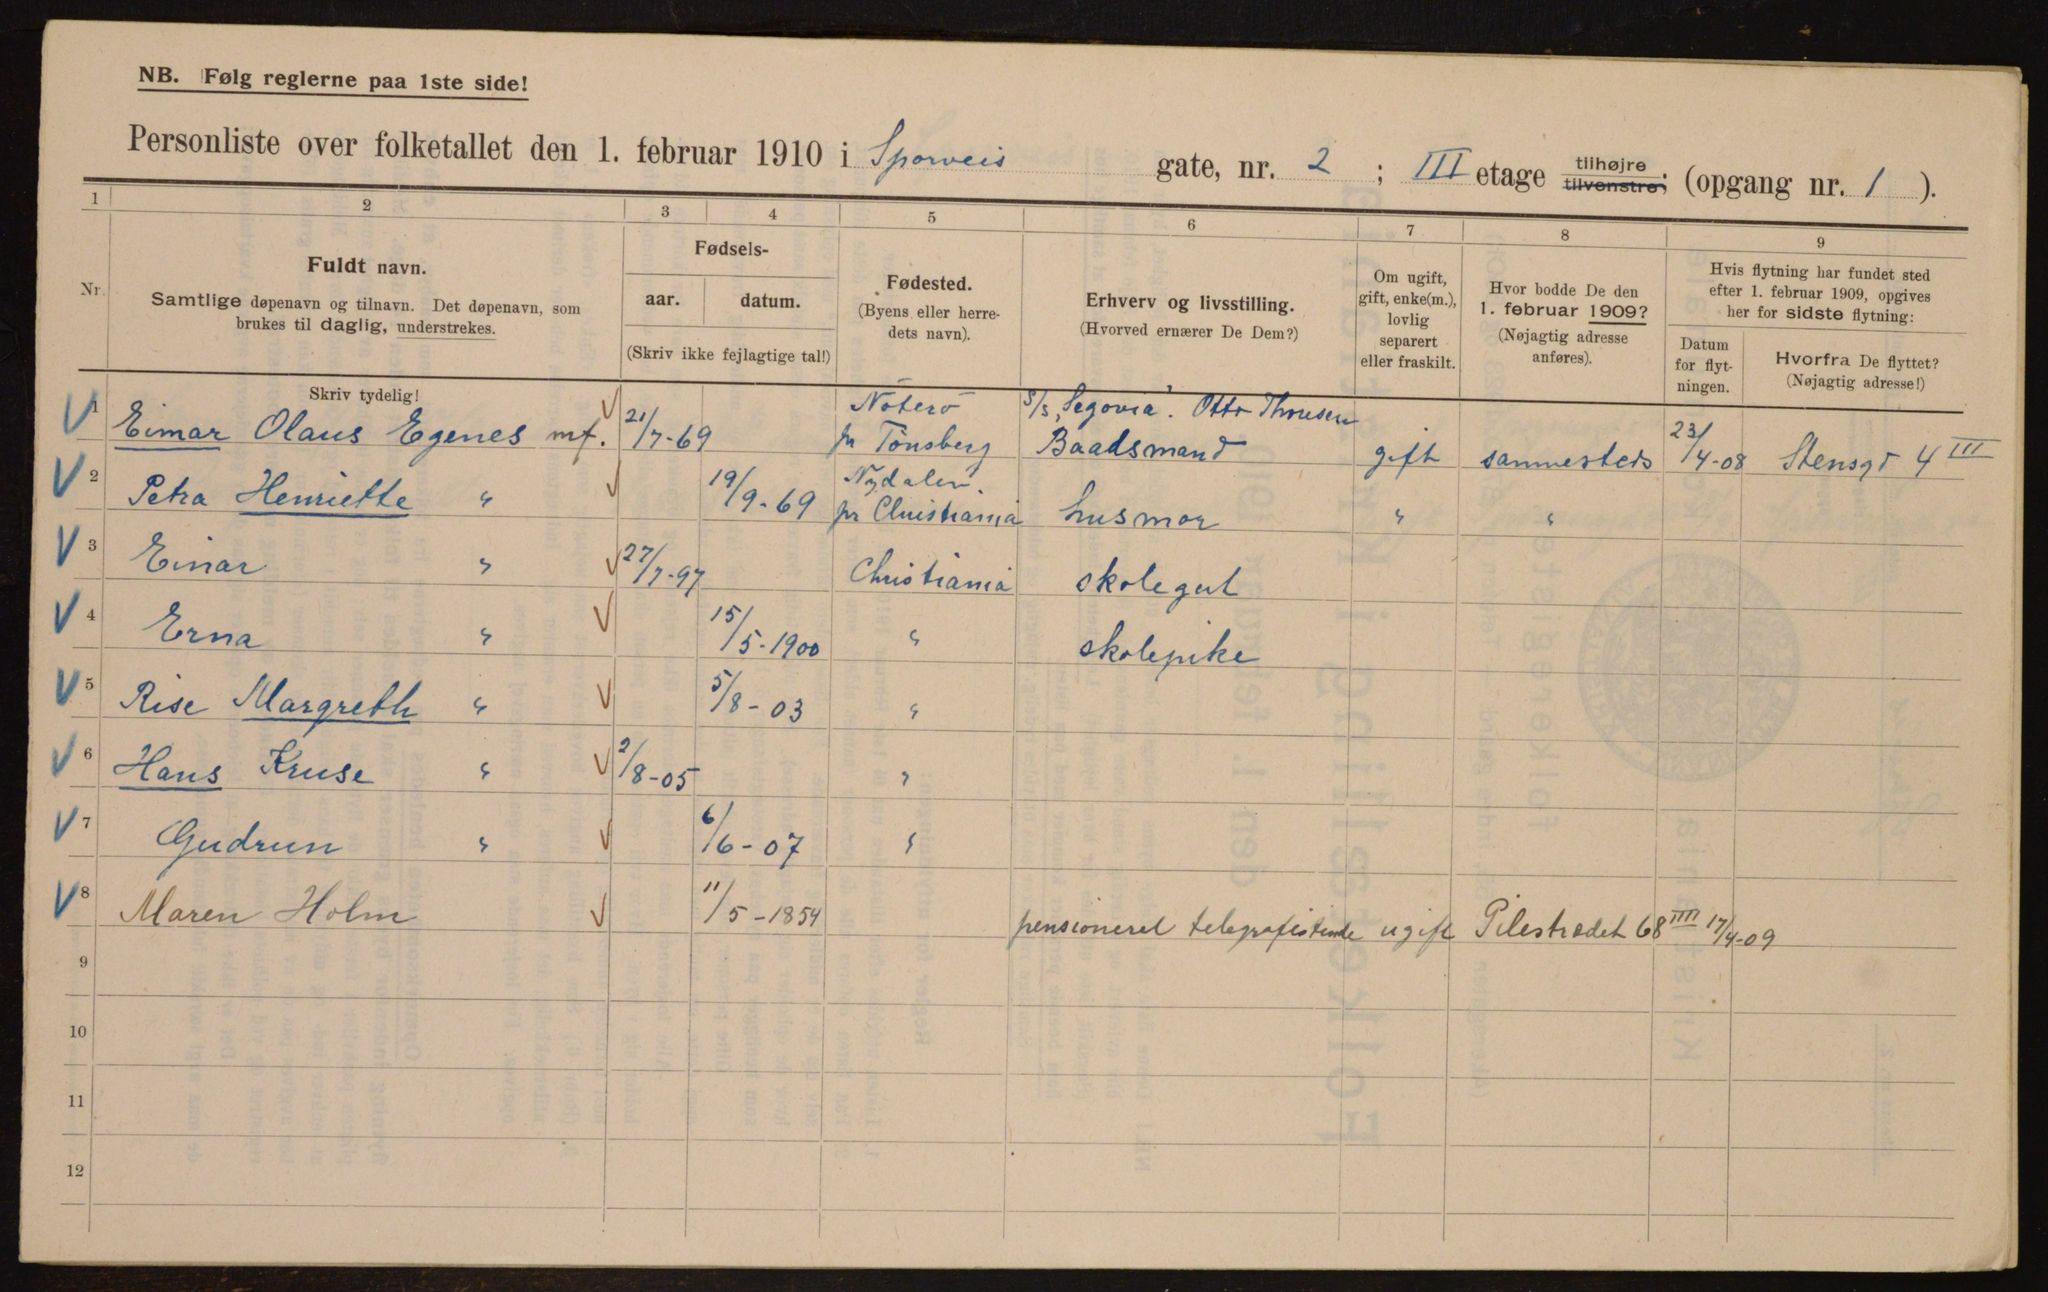 NB. Følg reglerne paa 1ste side!
Personliste over folketallet den 1. februar 1910 i Sporveis gate, nr. 2 ; III etage tilhøjre tilvenstre; (opgang nr. 1 ).
1 2 3 4 5 6 7 8 9
Nr.
Fuldt navn.
Samtlige døpenavn og tilnavn. Det døpenavn, som
brukes til daglig, understrekes.
Skriv tydelig!
Fødsels-
aar. datum.
(Skriv ikke fejlagtige tal!)
Fødested.
(Byens eller herre-
dets navn).
Erhverv og livsstilling.
(Hvorved ernærer De Dem?)
Om ugift,
gift, enke(m.),
lovlig
separert
eller fraskilt.
Hvor bodde De den
1. februar 1909?
(Nøjagtig adresse
anføres).
Hvis flytning har fundet sted
efter 1. februar 1909, opgives
her for sidste flytning:
Datum
for flyt-
ningen.
Hvorfra De flyttet?
(Nøjagtig adresse!)
Nöterö S/S "Segovia". Otto Thoresen
1 Eimar Olaus Egenes mf. 21/7-69 pr Tönsberg Baadsmand gift sammesteds 23/4-08 Stensgd 4 III
Nydalen.
2 Petra Henriette " 19/9-69 pr Christiania husmor " "
3 Einar " 27/7-97 Christiania skolegut
4 Erna " 15/5-1900 " skolepike
5 Rise Margreth " 5/8-03 "
6 Hans Kruse " 2/8-05 "
7 Gudrun " 6/6-07 "
8 Maren Holm 11/5-1854 pensioneret telegrafistinde ugift Pilestrædet 68 IIII 17/4-09
9
10
11
12